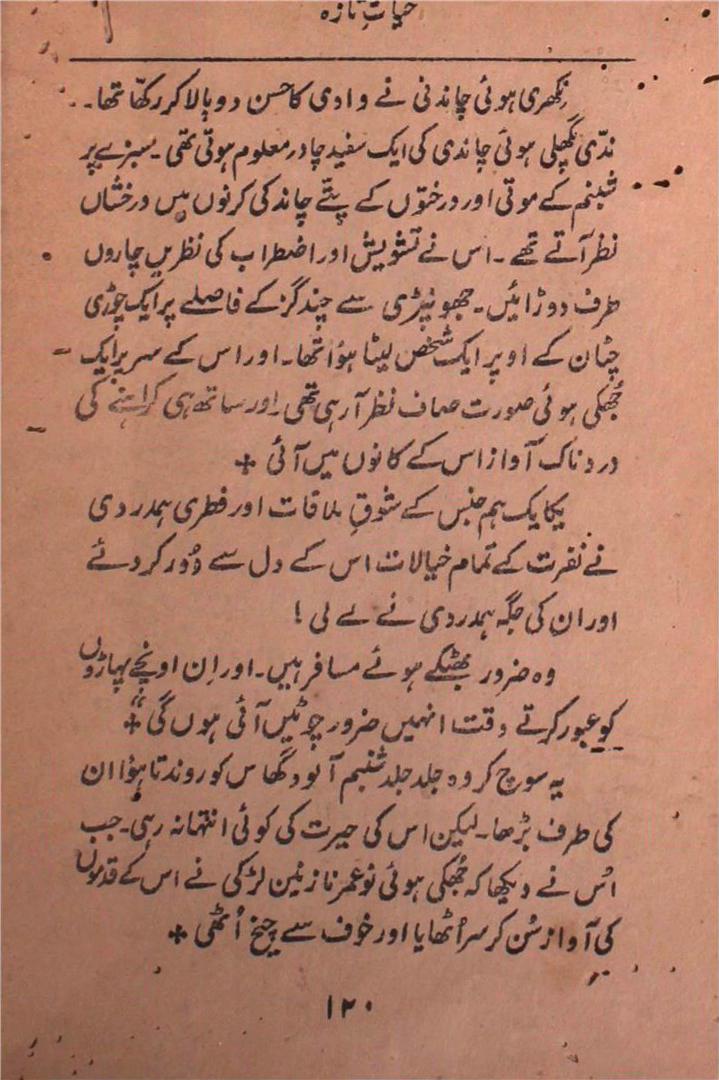 حیاتِ تازہ
نِکھری ہوئی چاندنی نے وادی کا حسن دوبالا کر رکھّا تھا۔
ندّی پگھلی ہوئی چاندی کی ایک سفید چادر معلوم ہوتی تھی۔ سبزے پر
شبنم کے موتی اور درختوں کے پتّے چاند کی کرنوں میں درخشاں
نظر آتے تھے۔ اس نے تشویش اور اضطراب کی نظریں چاروں
طرف دوڑائیں۔ جھونپڑی سے چند گز کے فاصلے پر ایک چوڑی
چٹان کے اوپر ایک شخص لیٹا ہؤا تھا۔ اور اس کے سر پر ایک
جُھکی ہوئی صورت صاف نظر آ رہی تھی اور ساتھ ہی کراہنے کی
دردناک آواز اس کے کانوں میں آئی +
یکایک ہم جنس کے شوقِ ملاقات اور فطری ہمدردی
نے نفرت کے تمام خیالات اس کے دل سے دُور کر دئے
اور ان کی جگہ ہمدردی نے لے لی!
وہ ضرور بھٹکے ہوئے مسافر ہیں۔ اور اِن اونچے پہاڑوں
کو عبور کرتے وقت انہیں ضرور چوٹیں آئی ہوں گی“ +
یہ سوچ کر وہ جلد جلد شبنم آلود گھاس کو روندتا ہؤا ان
کی طرف بڑھا۔ لیکن اس کی حیرت کی کوئی انتہا نہ رہی۔ جب
اُس نے دیکھا کہ جُھکی ہوئی نوعمر نازنین لڑکی نے اس کے قدموں
کی آواز سُن کر سر اُٹھایا اور خوف سے چیخ اُٹھی +
۱۲۰